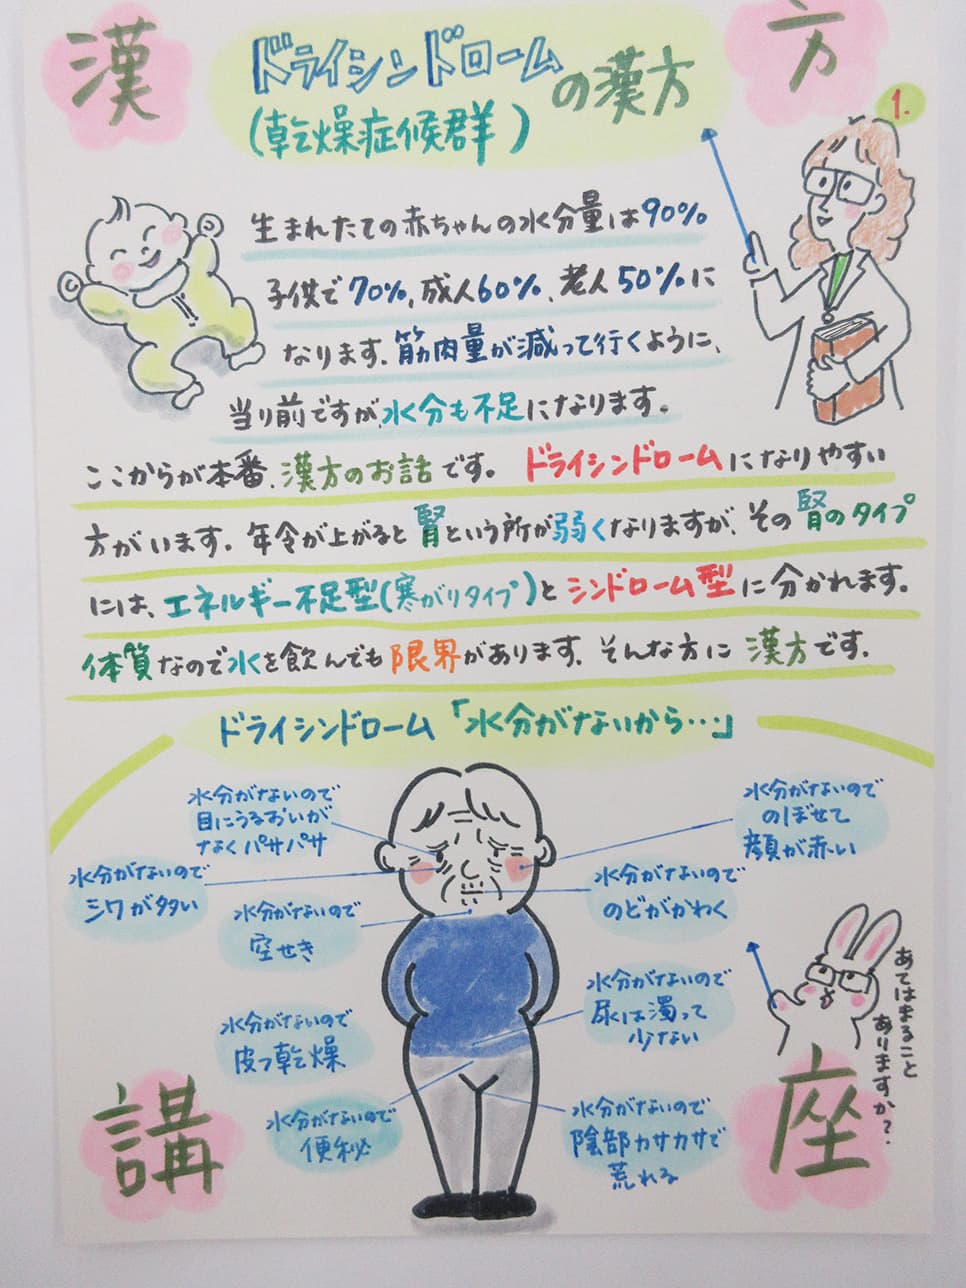 漢方
ドライシンドロームの漢方
(乾燥症候群)
1.
生まれたての赤ちゃんの水分量は90%
子供で70%、成人60%、老人50%に
なります。筋肉量が減って行くように、
当り前ですが、水分も不足になります。
ここからが本番、漢方のお話です。ドライシンドロームになりやすい
方がいます。年令が上がると腎という所が弱くなりますが、その腎のタイプ
には、エネルギー不足型(寒がりタイプ)とシンドローム型に分かれます。
体質なので水を飲んでも限界があります。そんな方に漢方です。
ドライシンドローム「水分がないから…」
水分がないので
目にうるおいが
なくパサパサ
水分がないので
のぼせて
顔が赤い
水分がないので
シワが多い
水分がないので
のどがかわく
水分がないので
空せき
水分がないので
尿は濁って
少ない
水分がないので
皮フ乾燥
水分がないので
便秘
水分がないので
陰部カサカサで
荒れる
あてはまること
ありますか?
講座